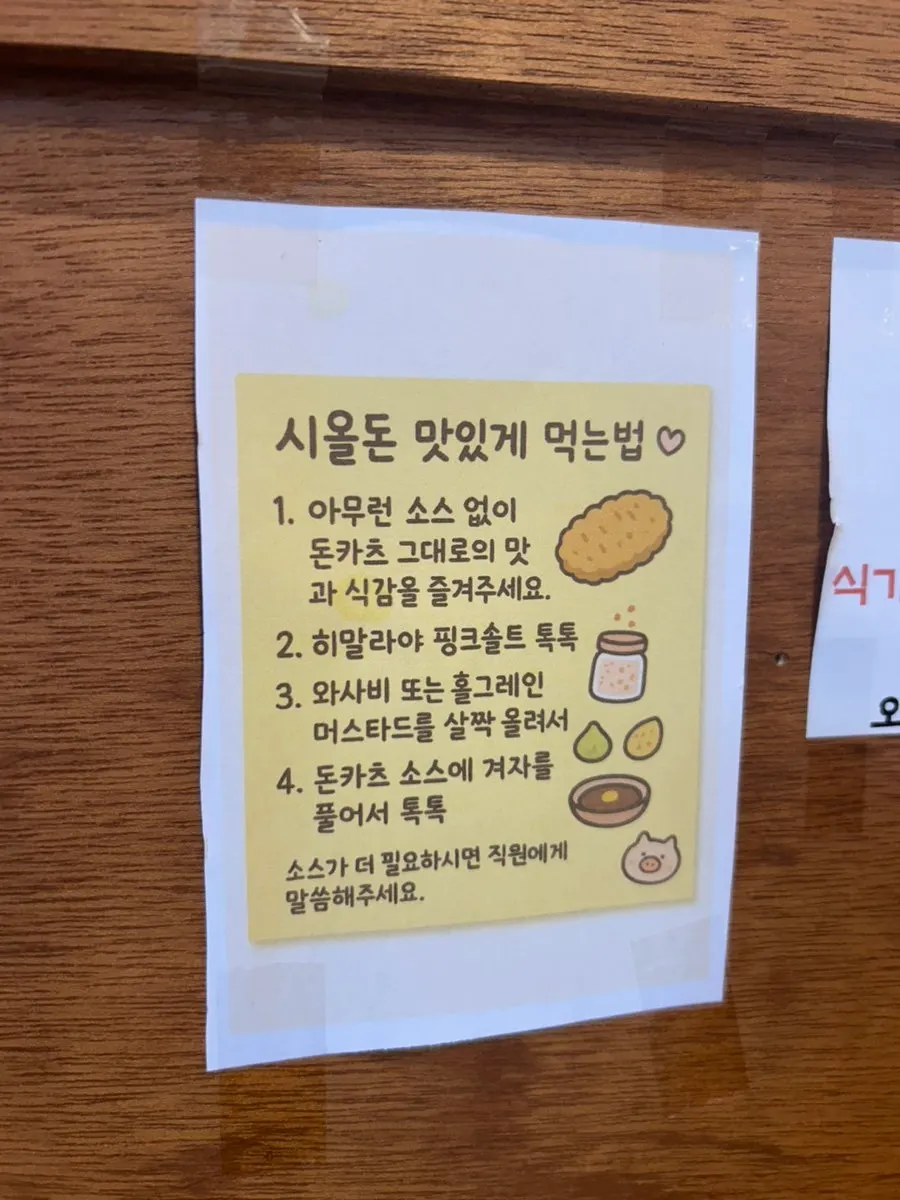 시올돈 맛있게 먹는법♡
1. 아무런 소스 없이
돈카츠 그대로의 맛
과 식감올 즐겨주세요.
2. 히말라야 핑크솔트 톡톡
3. 와사비 또는 홀그레인
머스타드를 살짝 올려서
4. 돈카츠 소스에 겨자를
풀어서 톡톡
소스가 더 필요하시면 직원에게
말씀해주세요.
식기